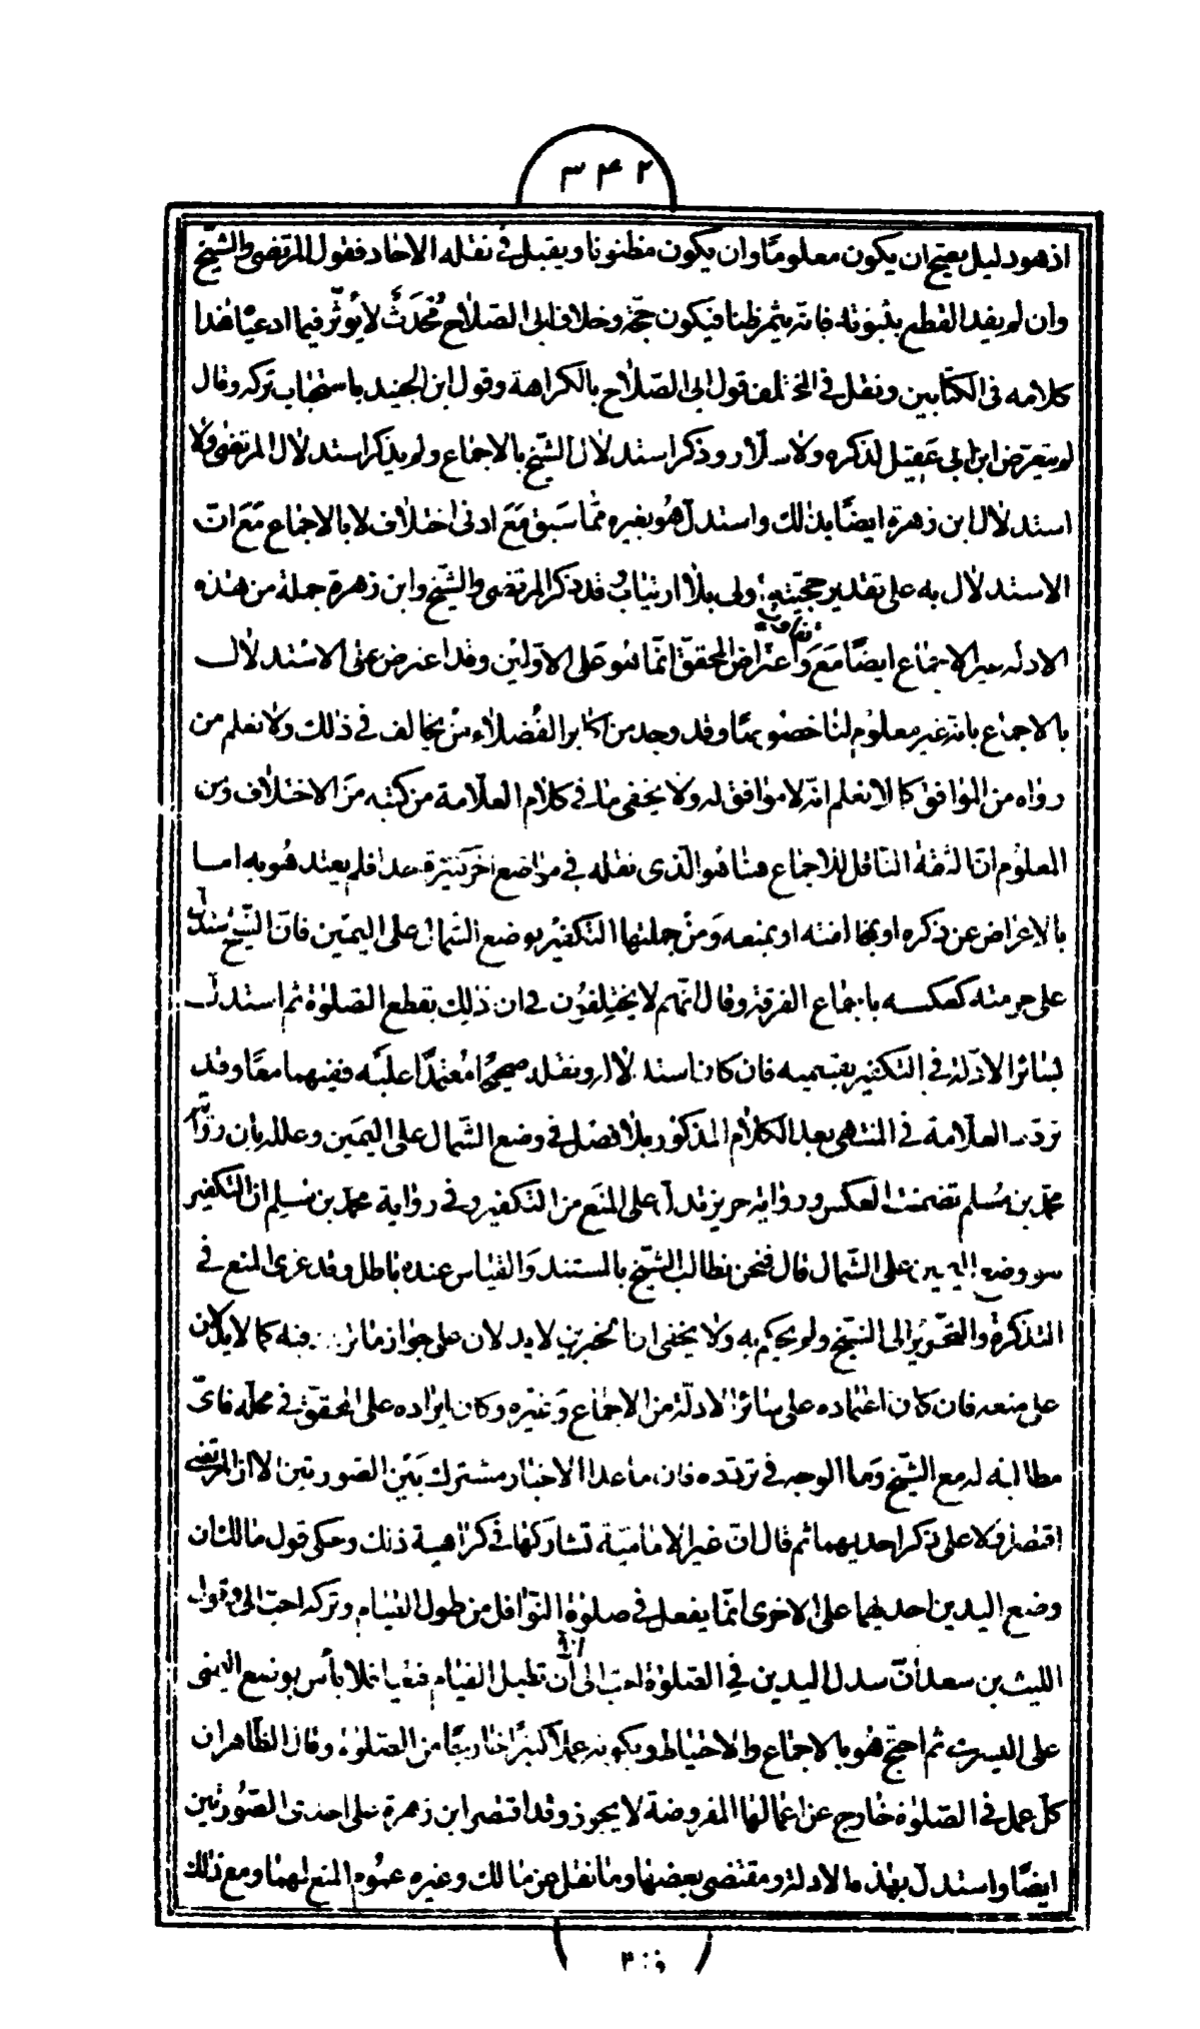 ۳۴۲
اذ هو دليل يصح ان يكون معلومًا وان يكون مظنونا ويقبل في نقله الاحاد فقول المرتضى والشيخ
وان لم يفد القطع بثبوته فانه يثمر ظنا فيكون حجّة وخلاف ابى الصّلاح مُحْدَثٌ لا يُوثّر فيما ادعيناه هذا
كلامه فى الكتابين ونقل فى المختلف قول ابى الصّلاح بالكراهة وقول ابن الجنيد باستحباب تركه وقال
لم يتعرّض ابن ابى عَقيل لذكره ولا سلّار وذكر استدلال الشيخ بالاجماع ولم يذكر استدلال المرتضى ولا
استدلال ابن زهرة ايضًا بذلك واستدل هُو بغيره ممّا سَبق مَعَ ادنى اختلاف لا بالاجماع مَعَ انّ
الاستدلال به على تقدير حجيّته اولى بلا ارتياب وقد ذكر المرتضى والشّيخ وابن زهرة جملة من هذه
الادله غير الاجماع ايضًا مَعَ واعتراض المحقق انّما هو عَلى الاوّلين وقد اعترض على الاستدلال
بالاجماع بانه غير معلوم لنا خصوصًا وقد وجد من اكابر الفُضلاء مَنْ يخالف فى ذلك ولا نعلم من
رواه من الموافق كما لا نعلم انه لا موافق له ولا يخفى ما فى كلام العلّامة من كتبه مِنَ الاختلاف ومن
المعلوم انّ الثقة الناقل للاجماع هنا هو الّذى نقله فى مواضع اخَر كثيرة جدا فلم يعتد هُو به امّا
بالاعراض عن ذكره او بمخالفته او بمنعه وَمنْ جملتها التكفيُر بوضع الشمال على اليمين فان الشّيخ استدل
على حرمته كعكسه باجماع الفرقة وقال انّهم لا يختلفُون فى ان ذلك يقطع الصلوة ثم استدل
بسائر الادّلة فى التكفير بقسميه فان كان استدلاله ونقله صحيحًا مُعتمدًا عليْه ففيهما معًا وقد
تردّد العلّامة فى المنتهى بعد الكلام المذكور بلا فصل فى وضع الشّمال على اليمَين وعلله بان رواية
محمّد بن مُسلم تضمنت العكس ورواية حريز تدل على المنَع من التكفير وفى رواية محمد بن مُسلِم ان التكفير
هو وضع اليمين على الشمال قال فنحن نطالب الشّيخ بالمستند وَالقياس عنده باطل وقد عزى المنع فى
التذكرة والتحرير الى الشّيخ ولم يحكم به ولا يخفى ان الخبرين لا يدلان على جواز ما تردد فيه كما لا يدلّان
على منعه فان كان اعتماده على سائر الادلّة من الاجماع وَغيْره وكان ايراده على المحقّق فى محله فاىّ
مطالبة له مع الشّيخ وَما الوجه فى تردّده فان ما عدا الاخبار مشترك بَيْن الصّورتين الا ان المرتضى
اقتصر اولا على ذكر احديهما ثم قال ان غير الاماميّة تشاركها فى كراهية ذلك وحكى قول مالك ان
وضع اليدين احديهما على الاخرى انّما يفعل فى صلوة النّوافل من طول القيام وتركه احبّ الىّ وقول
الليث بن سعد انّ سدل اليدين فى الصّلوة احبّ الىّ الا ان تطيل القيام فتعيا فلا بأس بوضع اليمنى
على اليسرى ثم احتج هُو بالاجماع والاحتياط وبكونه عملًا كثيرًا خارجًا من الصّلوة وقال الظّاهر ان
كلّ عمل فى الصّلوة خارج عن اعمالها المفروضة لا يجوز وقد اقتصر ابن زهرة على احدى الصّورتين
ايضًا واستدلّ بهذه الادلة ومقتضى بعضها وما نقل عن مالك وغيره عمُوم المنع لهما ومع ذلك